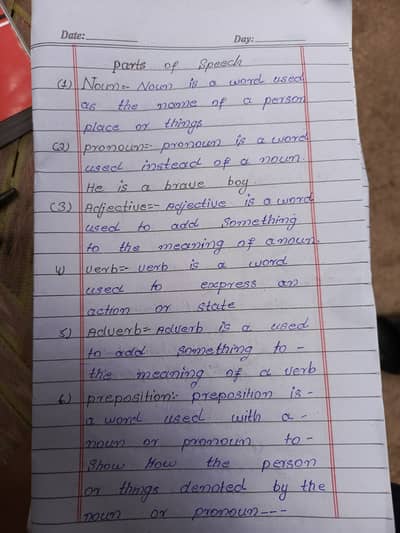 Date: Day:
Parts of Speech
(1) Noun:- Noun is a word used
as the name of a person
place or things
(2) pronoun:- pronoun is a word
used instead of a noun.
He is a brave boy.
(3) Adjective:- Adjective is a word
used to add something
to the meaning of a noun.
4) verb:- verb is a word
used to express an
action or state
5) Adverb:- Adverb is a used
to add something to -
the meaning of a verb
6) preposition:- preposition is -
a word used with a -
noun or pronoun to -
Show How the person
or things denoted by the
noun or pronoun---